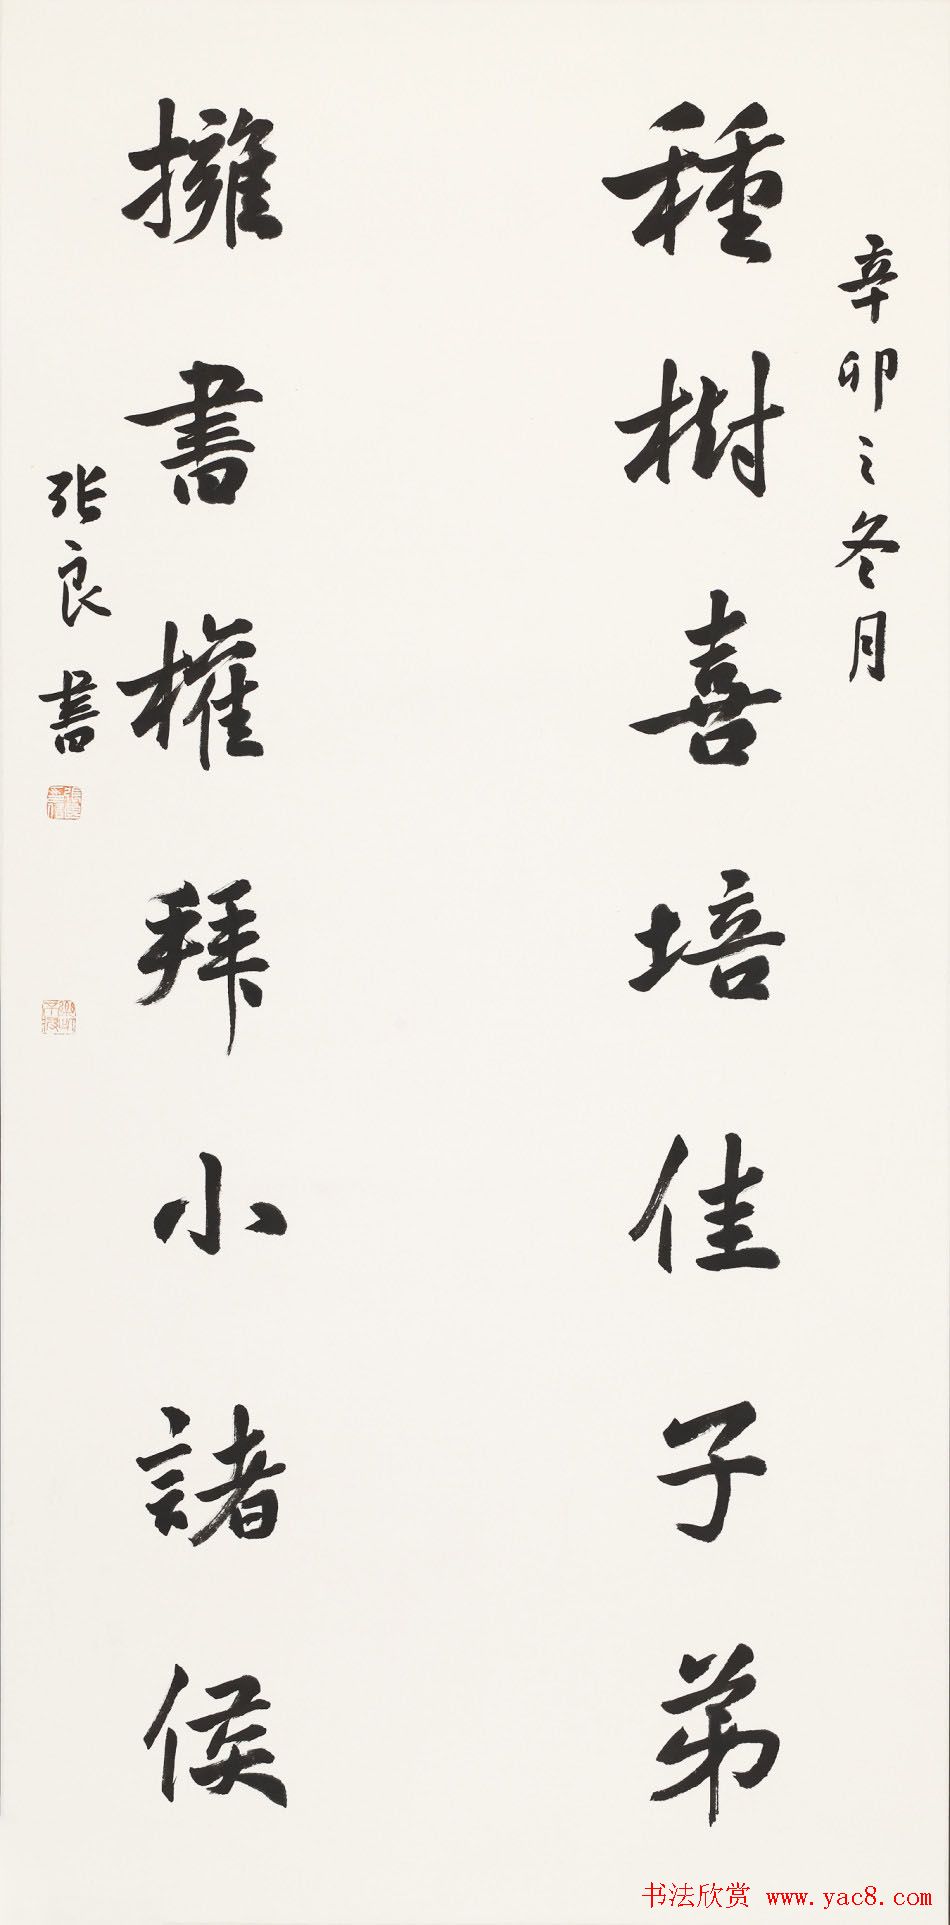 辛卯之冬月
種樹喜培佳子弟
擁書權拜小諸侯
张良書
书法欣赏 www.yac8.com